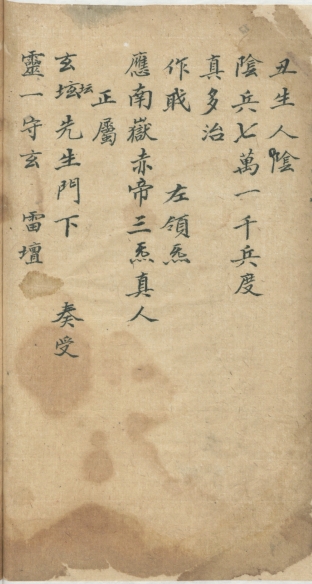 丑生人陰
陰兵七萬一千兵度
真多治
作戝 左領炁
應南嶽赤帝三炁真人
正屬
玄坛坛先生門下 奏受
靈一守玄 雷壇